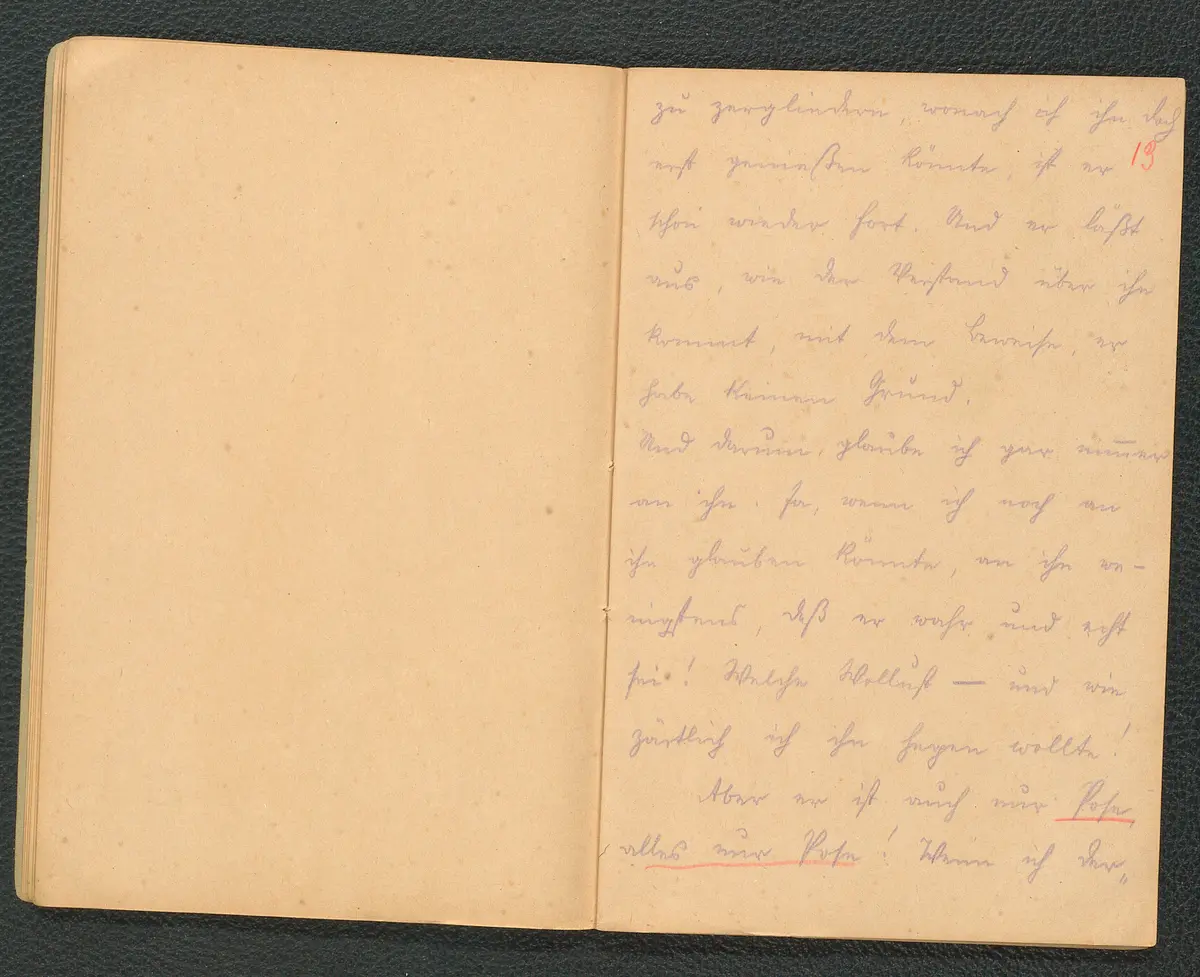 zu zergliedern, wonach ich ihn doch
13
erst genießen könnte, ist er
schon wieder fort. Und er läßt
aus, wie der Verstand über ihn
kommt, mit dem Beweise, er
habe keinen Grund.
Und darum glaube ich gar nim̅er
an ihn. Ja, wenn ich noch an
ihn glauben könnte, an ihn we-
nigstens, daß er wahr und echt
sei! Welche Wollust — und wie
zärtlich ich ihn hegen wollte!
Aber er ist auch nur Pose,
alles nur Pose! Wenn ich der„